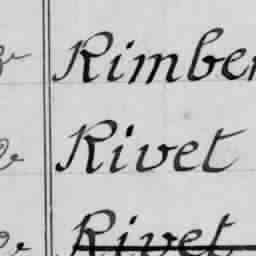 Rimber
Rivet
Rivet